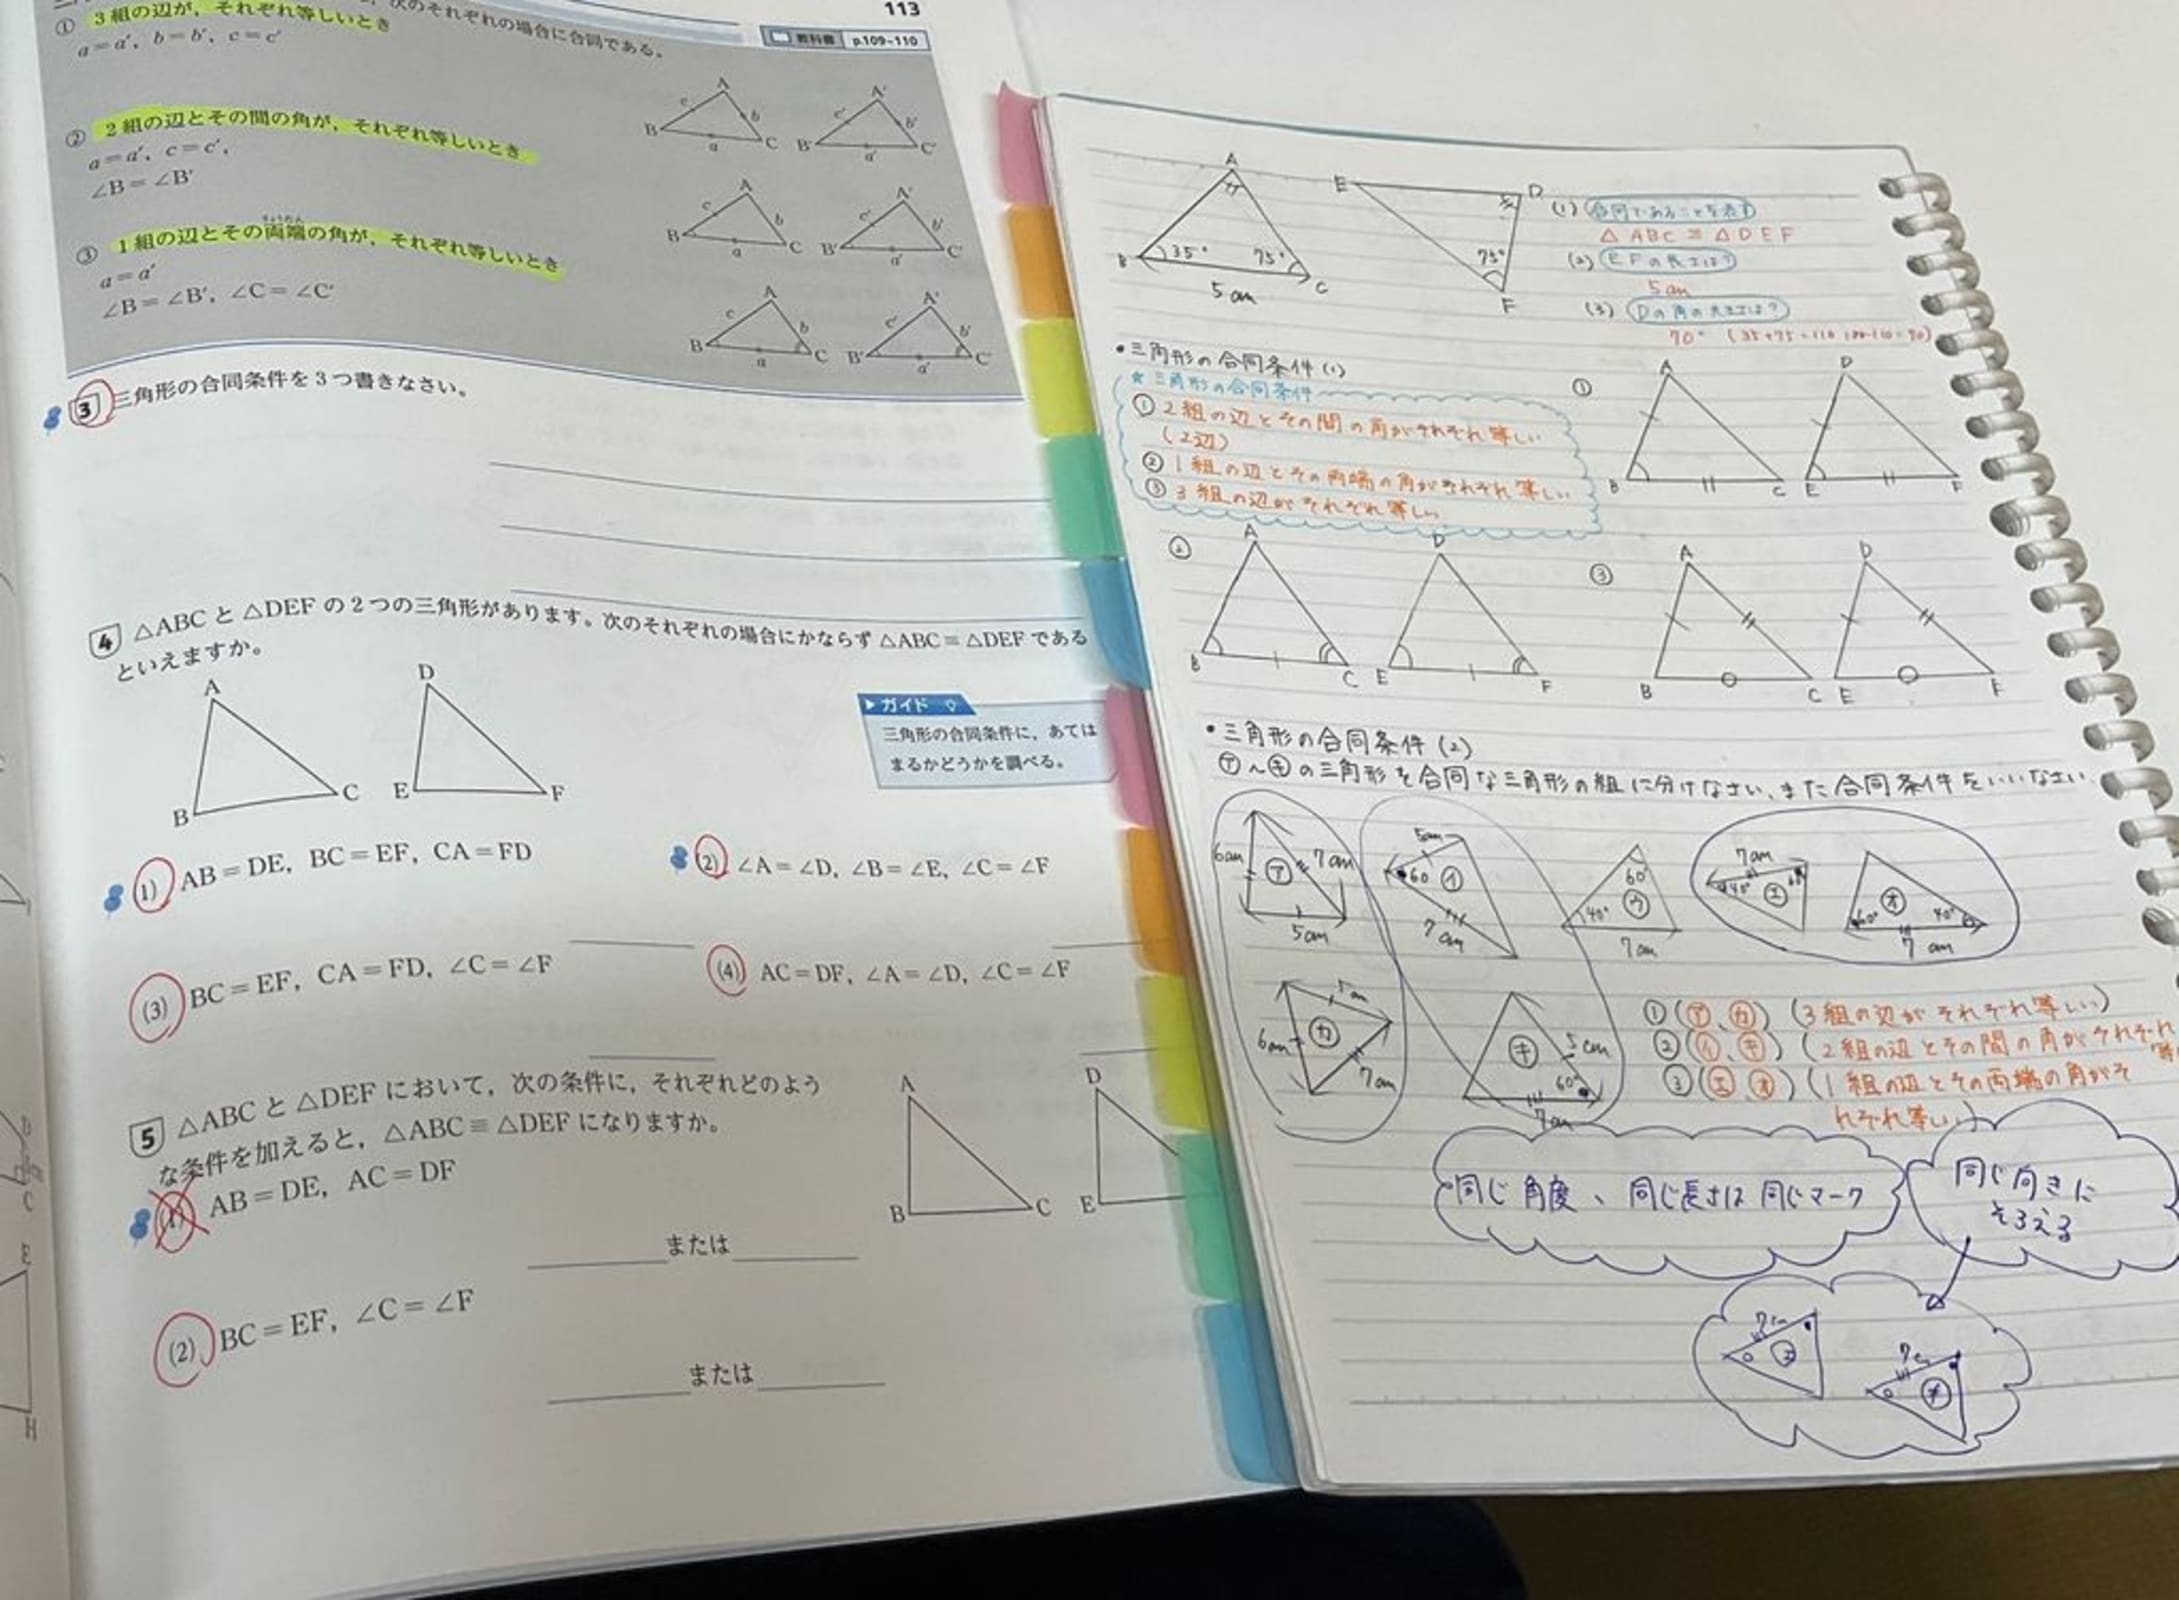 113
次のそれぞれの場合に合同である。
教科書 p.109~110
① 3組の辺が，それぞれ等しいとき
a=a′，b=b′，c=c′
② 2組の辺とその間の角が，それぞれ等しいとき
a=a′，c=c′，
∠B=∠B′
③ 1組の辺とその両端の角が，それぞれ等しいとき
りょうたん
a=a′
∠B=∠B′，∠C=∠C′
A A′
c b c′ b′
B a C B′ a′ C′
A A′
c b c′ b′
B a C B′ a′ C′
A A′
c b c′ b′
B a C B′ a′ C′
3 三角形の合同条件を3つ書きなさい。
4 △ABCと△DEFの2つの三角形があります。次のそれぞれの場合にかならず△ABC≡△DEFである
といえますか。
A D
B C E F
▶ガイド
三角形の合同条件に，あては
まるかどうかを調べる。
(1) AB=DE，BC=EF，CA=FD
(2) ∠A=∠D，∠B=∠E，∠C=∠F
(3) BC=EF，CA=FD，∠C=∠F
(4) AC=DF，∠A=∠D，∠C=∠F
5 △ABCと△DEFにおいて，次の条件に，それぞれどのよう
な条件を加えると，△ABC≡△DEFになりますか。
A D
B C E
(1) AB=DE，AC=DF
または
(2) BC=EF，∠C=∠F
または
C
E
H
A E D
B 35° 75° C 75° F
5cm
(1) 合同であることを表す
△ABC≡△DEF
(2) EFの長さは?
5cm
(3) Dの角の大きさは?
70° (35+75=110 180-110=70)
・三角形の合同条件(1)
★三角形の合同条件
① 2組の辺とその間の角がそれぞれ等しい
(2辺)
② 1組の辺とその両端の角がそれぞれ等しい
③ 3組の辺がそれぞれ等しい
① A D
B C E F
② A D
B C E F
③ A D
B C E F
・三角形の合同条件(2)
㋐〜㋖の三角形を合同な三角形の組に分けなさい、また合同条件をいいなさい
6cm ㋐ 7cm
5cm
5cm 60 ㋑
7cm
60° 40° ㋒
7cm
7cm 40° ㋓ 60
㋔ 60° 40°
7cm
㋕ 5cm
6cm 7cm
㋖ 5cm
60°
7cm
①(㋐、㋕) (3組の辺がそれぞれ等しい)
②(㋑、㋖) (2組の辺とその間の角がそれぞれ
等
③(㋓、㋔) (1組の辺とその両端の角がそ
れぞれ等しい)
同じ角度、同じ長さは同じマーク
同じ向きに
そろえる
7cm ㋓
7c ㋔